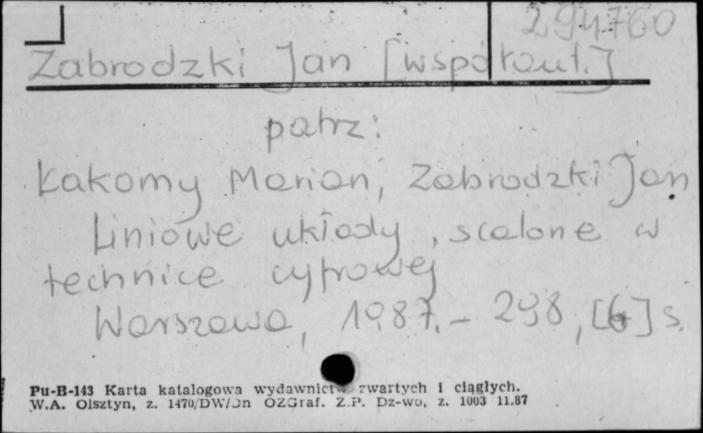 294760
Zabrodzki Jan [współaut.]
patrz:
Łakomy Marian, Zabrodzki Jan
Liniowe układy scalone w
technice cyfrowej
Warszawa, 1987. - 298, [6] s.
Pu-B-143 Karta katalogowa wydawnictw zwartych i ciągłych.
W.A. Olsztyn, z. 1470/DW/Dn OZGraf. Z.P. Dz-wo, z. 1003 11.87